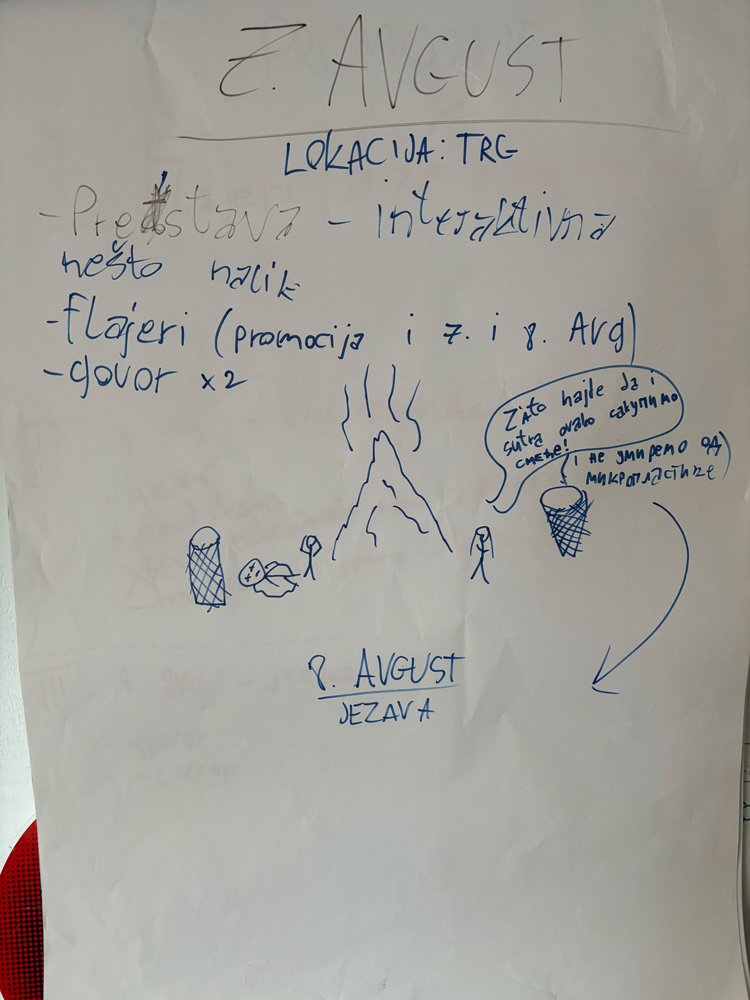 7. AVGUST
LOKACIJA: TRG
- Predstava - interaktivna
nešto nalik
- flajeri (promocija i 7. i 8. Avg)
- govor x2
Zato hajde da i
sutra ovako сакупимо
смеће!
(и не умиремо од
микропластике)
8. AVGUST
JEZAVA